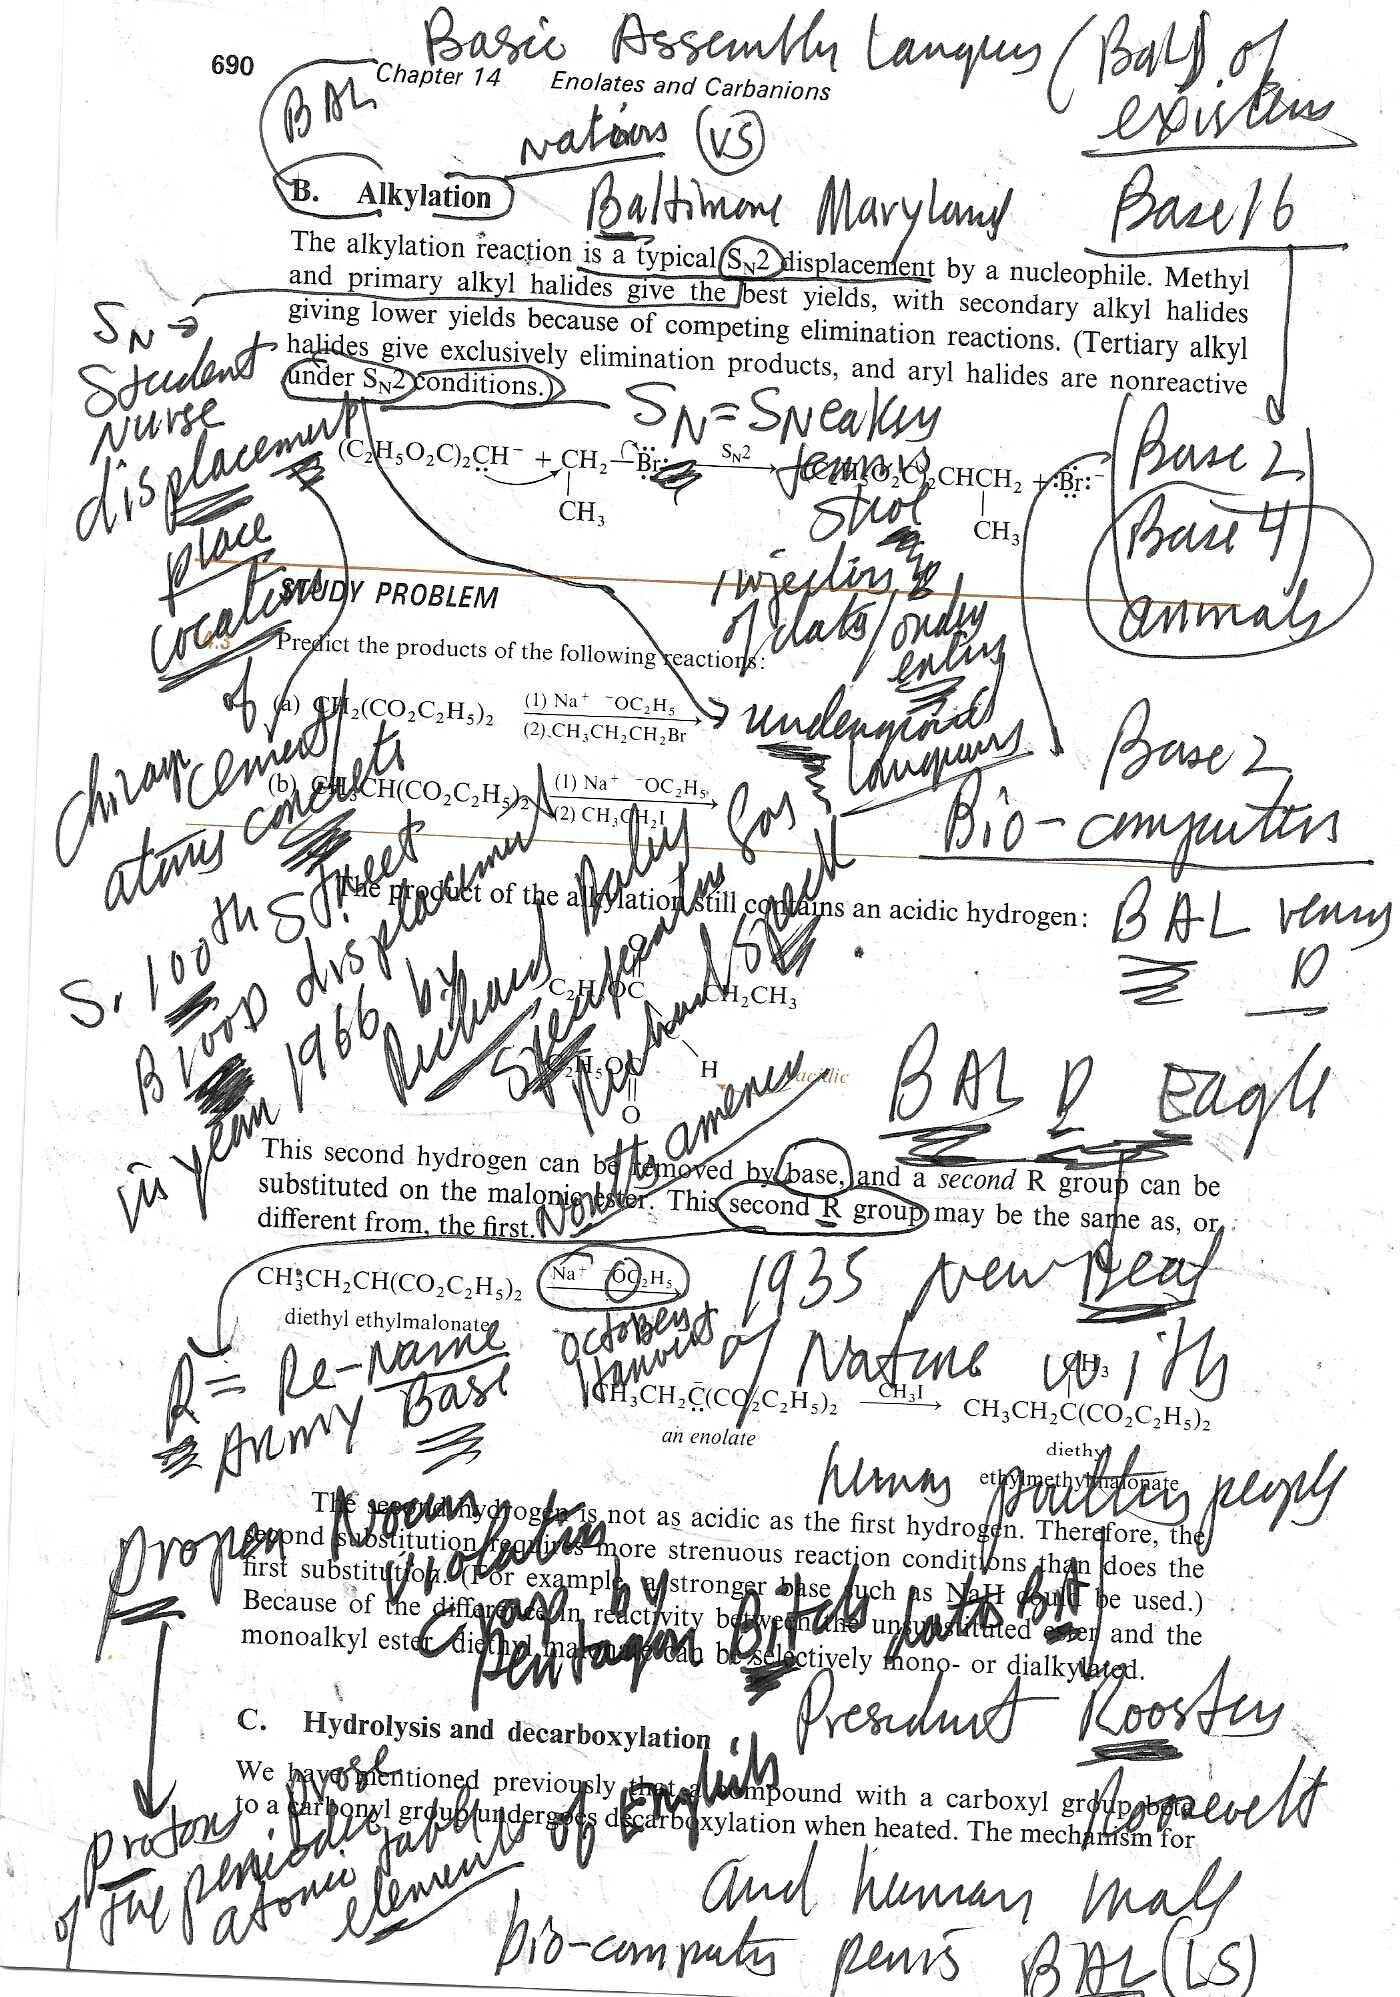 Basic Assembly
of
690
Chapter 14 Enolates and Carbanions
BAL
nations VS
B. Alkylation
Baltimore Maryland
Base 16
The alkylation reaction is a typical SN2 displacement by a nucleophile. Methyl
and primary alkyl halides give the best yields, with secondary alkyl halides
giving lower yields because of competing elimination reactions. (Tertiary alkyl
halides give exclusively elimination products, and aryl halides are nonreactive
under SN2 conditions.)
SN →
Student
Nurse
displacement
place
location
of
cement
concrete
atoms
SN = SNeaky
(C2H5O2C)2CH− + CH2—Br: SN2 (C2H5O2C)2CHCH2 + :Br:−
CH3 CH3
of data/
Base 2
Base 4
animals
STUDY PROBLEM
Predict the products of the following reactions:
(a) CH2(CO2C2H5)2 (1) Na+ −OC2H5
(2) CH3CH2CH2Br
(b) CH3CH(CO2C2H5)2 (1) Na+ −OC2H5
(2) CH3CH2I
Base 2
Bio-computers
The product of the alkylation still contains an acidic hydrogen:
BAL
D
S. 100th Street
displacement
in year 1966 by
Richard Daley
Richard Speck
North America
O
C2H5OC CH2CH3
C2H5OC H
acidic
O
BAL D Eagle
This second hydrogen can be removed by base, and a second R group can be
substituted on the malonic ester. This second R group may be the same as, or
different from, the first.
CH3CH2CH(CO2C2H5)2 Na+ −OC2H5
diethyl ethylmalonate
1935 New Deal
of Nature with
October
Harvest
R = Re-Name
Army Base
CH3
CH3CH2C̄(CO2C2H5)2 CH3I CH3CH2C(CO2C2H5)2
an enolate
diethyl
ethylmethylmalonate
human poultry people
The second hydrogen is not as acidic as the first hydrogen. Therefore, the
second substitution requires more strenuous reaction conditions than does the
first substitution. (For example, a stronger base such as NaH could be used.)
Because of the difference in reactivity between the unsubstituted ester and the
monoalkyl ester, diethyl malonate can be selectively mono- or dialkylated.
Proper Noun
by
Pentagon
President Rooster
Roosevelt
C. Hydrolysis and decarboxylation
We have mentioned previously that a compound with a carboxyl group beta
to a carbonyl group undergoes decarboxylation when heated. The mechanism for
Protons prose
of the periodic
atomic table
elements of English
and human male
bio-computer penis BAL(LS)